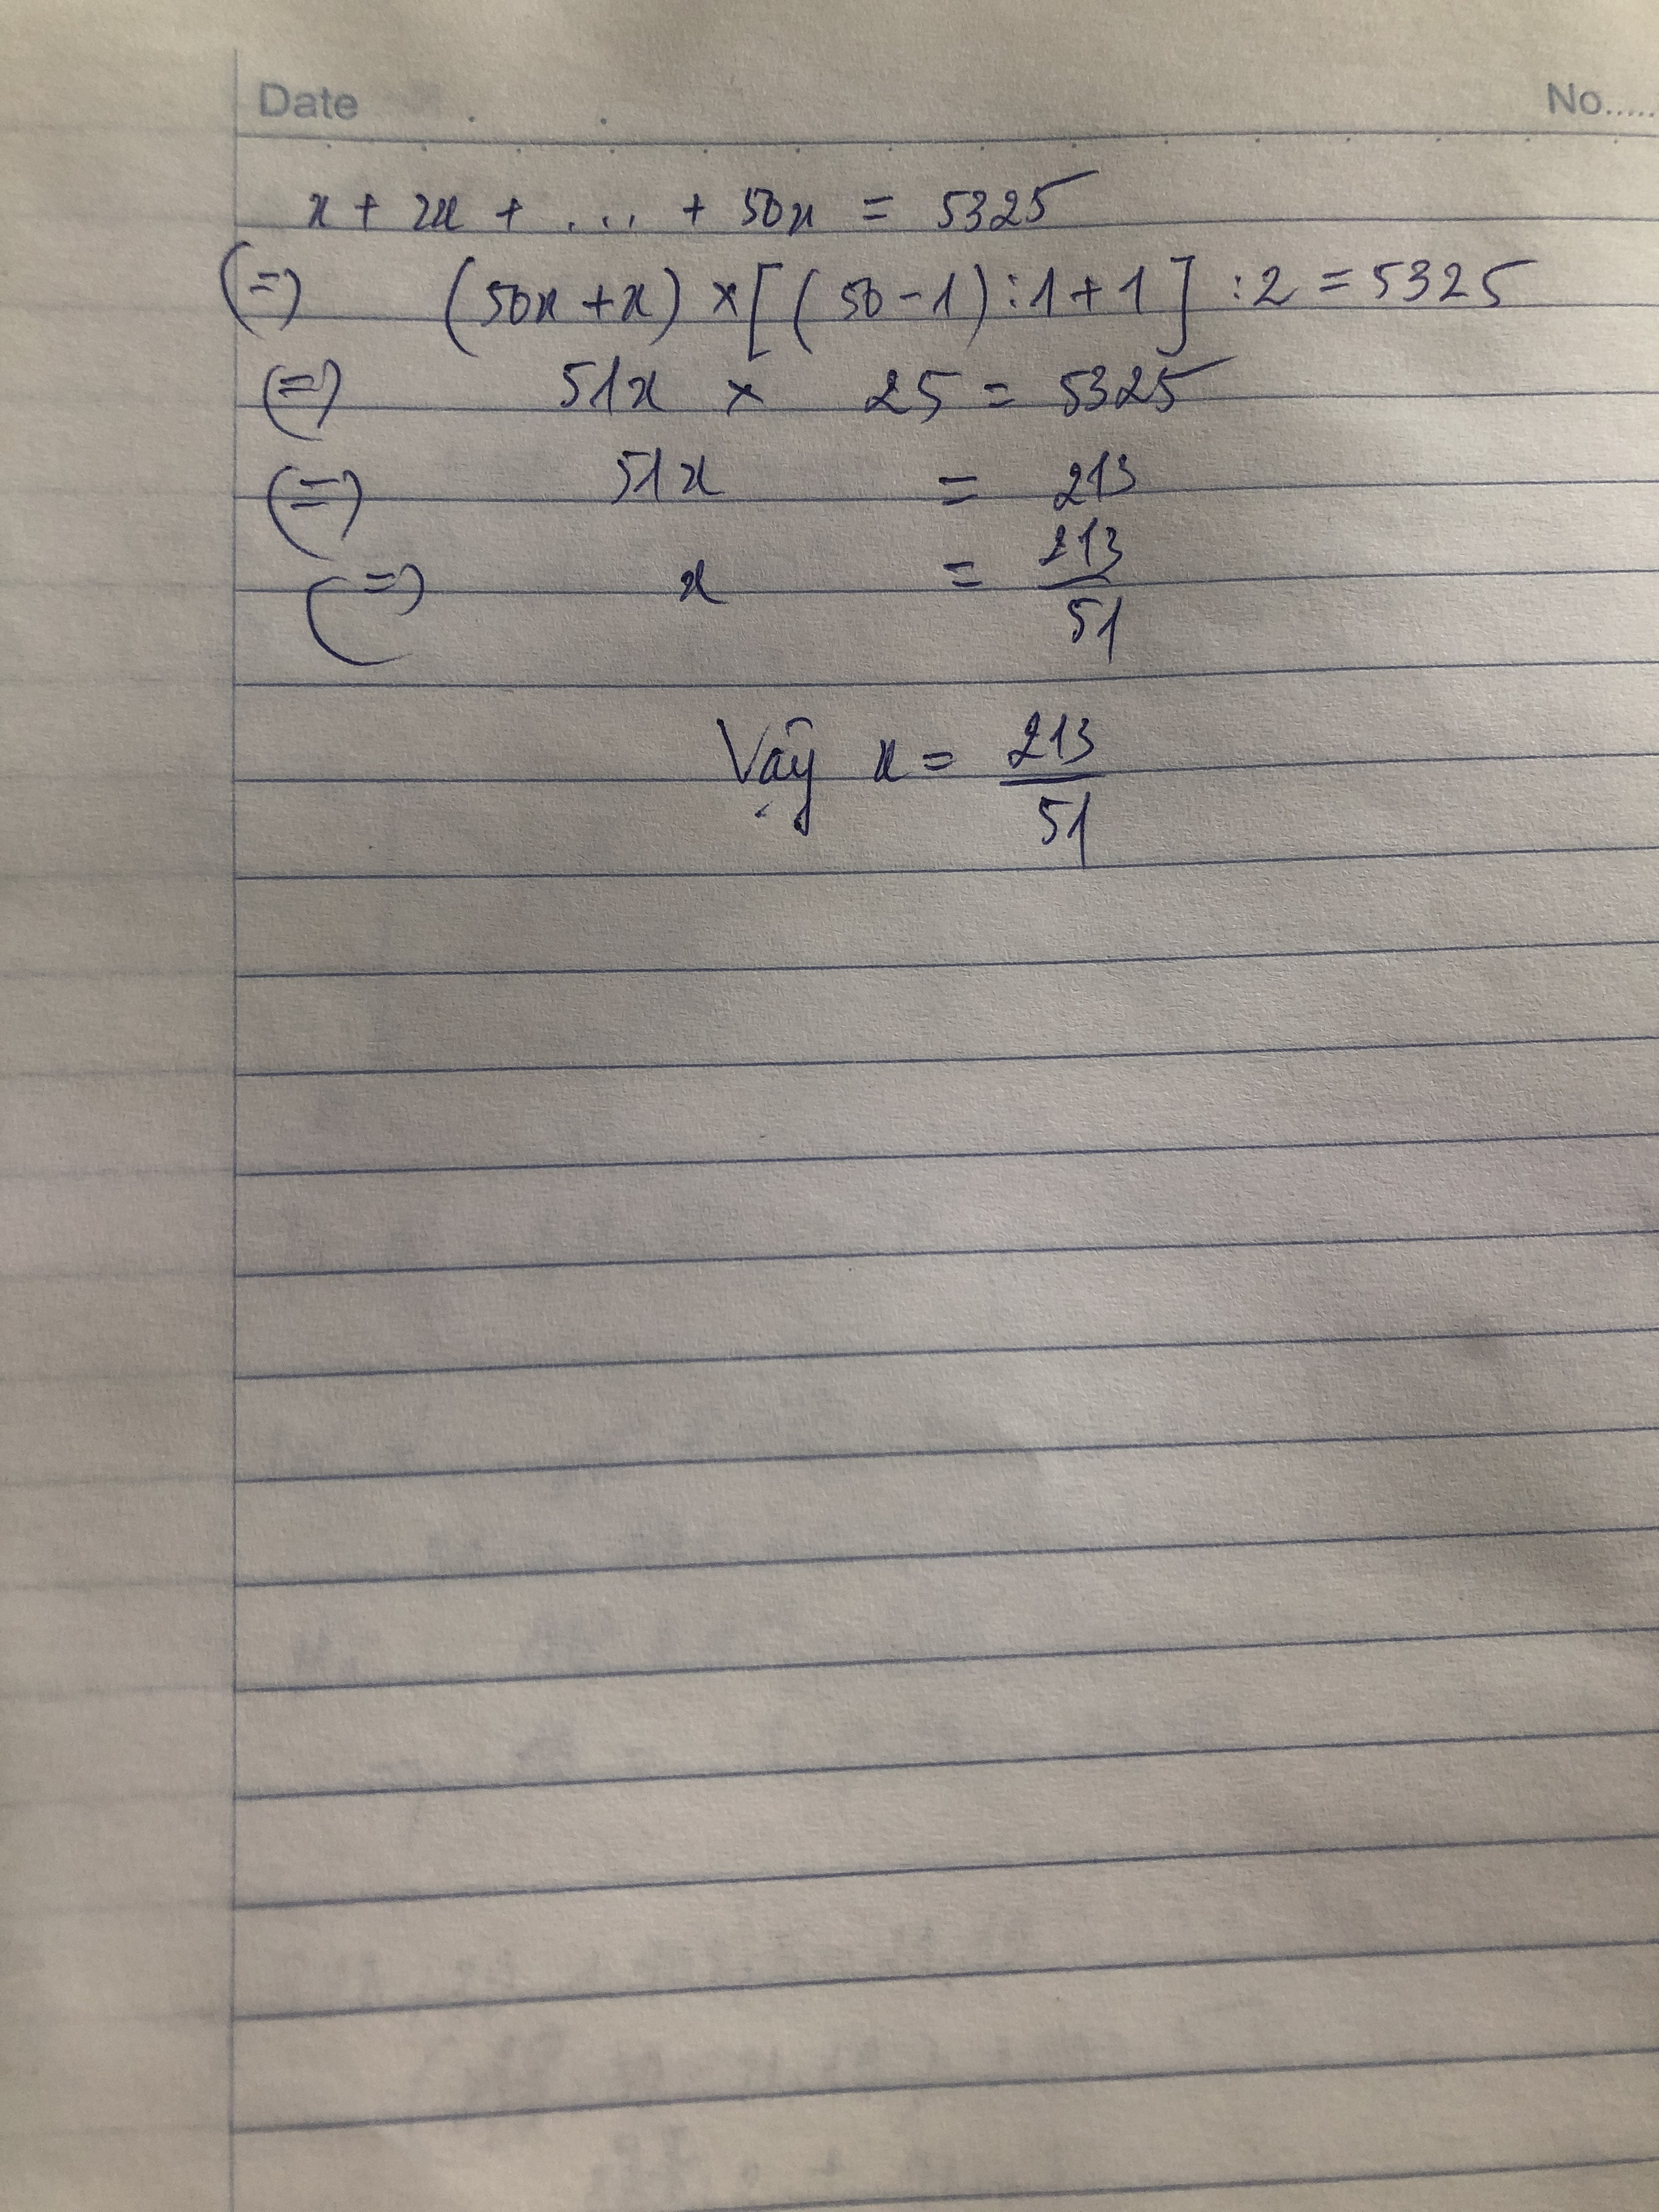 Date No.....
x + 2x + ... + 50x = 5325
(=) (50x + x) × [(50 - 1) : 1 + 1] : 2 = 5325
(=) 51x × 25 = 5325
(=) 51x = 213
(=) x = 213/51
Vậy x = 213/51